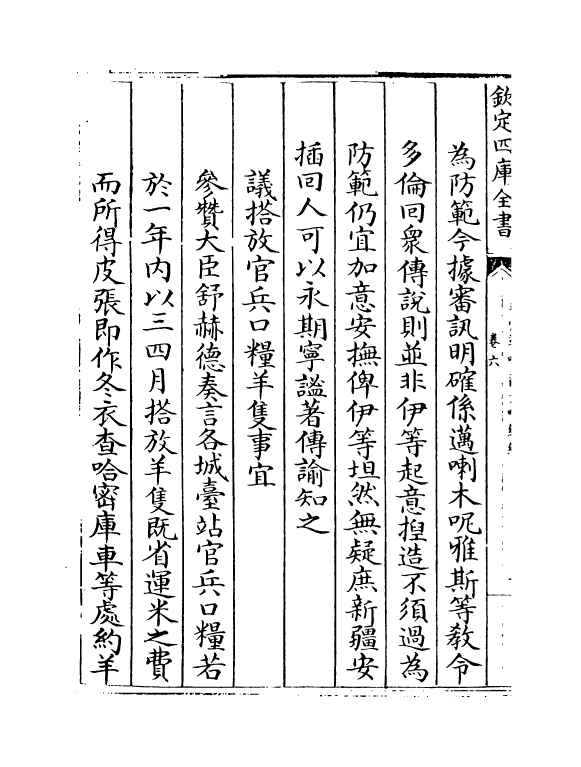 欽定四庫全書
卷六
為防範今據審訊明確係邁喇木呢雅斯等教令
多倫回衆傳説則並非伊等起意揑造不須過為
防範仍宜加意安撫俾伊等坦然無疑庶新疆安
插回人可以永期寧謐著傳諭知之
議搭放官兵口糧羊隻事宜
參贊大臣舒赫德奏言各城臺站官兵口糧若
於一年内以三四月搭放羊隻既省運米之費
而所得皮張即作冬衣查哈密庫車等處約羊